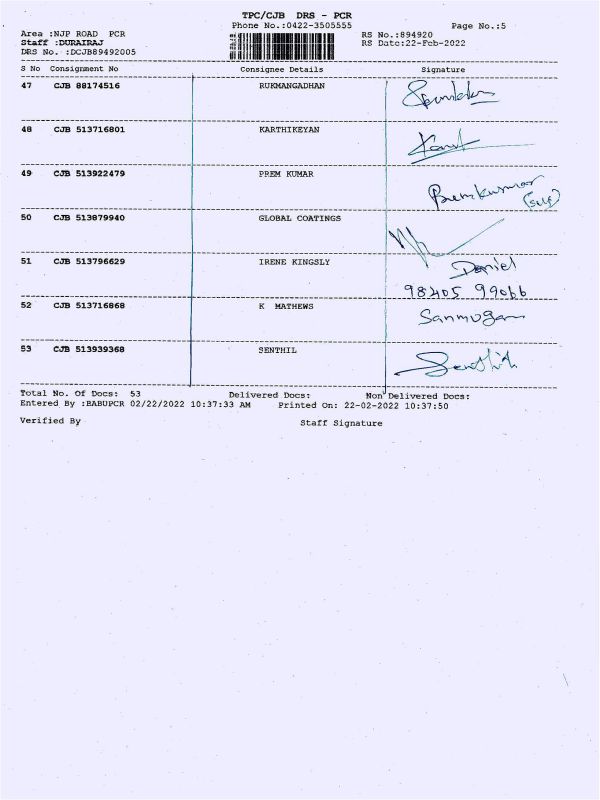 TPC/CJB DRS - PCR
Phone No.:0422-3505555 Page No.:5
Area :NJP ROAD PCR RS No.:894920
Staff :DURAIRAJ RS Date:22-Feb-2022
DRS No. :DCJB89492005
S No Consignment No Consignee Details Signature
47 CJB 88174516 RUKMANGADHAN
48 CJB 513716801 KARTHIKEYAN
49 CJB 513922479 PREM KUMAR Premkumar
(self)
50 CJB 513879940 GLOBAL COATINGS
51 CJB 513796629 IRENE KINGSLY Daniel
98405 99066
52 CJB 513716868 K MATHEWS Sanmugam
53 CJB 513939368 SENTHIL Senthil
Total No. Of Docs: 53 Delivered Docs: Non Delivered Docs:
Entered By :BABUPCR 02/22/2022 10:37:33 AM Printed On: 22-02-2022 10:37:50
Verified By Staff Signature